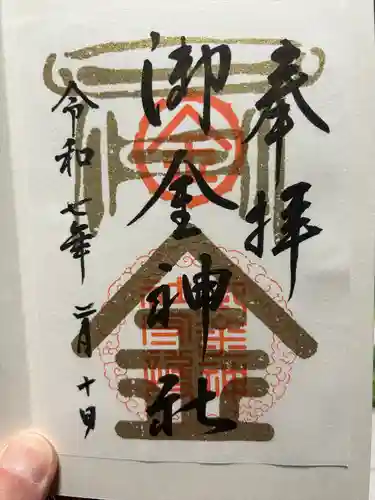 奉拝
御金神社
令和七年二月十日
金